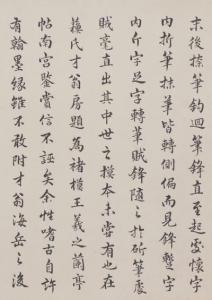 末後捺筆鈎迴筆直至起處懷字
内折筆抹筆皆轉側偏而見鋒蹔字
内斤字足字轉筆賊鋒隨之於斫筆處
賊毫直出其中世之摸本未嘗有也在
蘓氏才翁房題為褚模王羲之蘭亭
帖南宫鉴賞信不誣矣余性嗜古自許
有翰墨緣雖不敢附才翁海岳之後